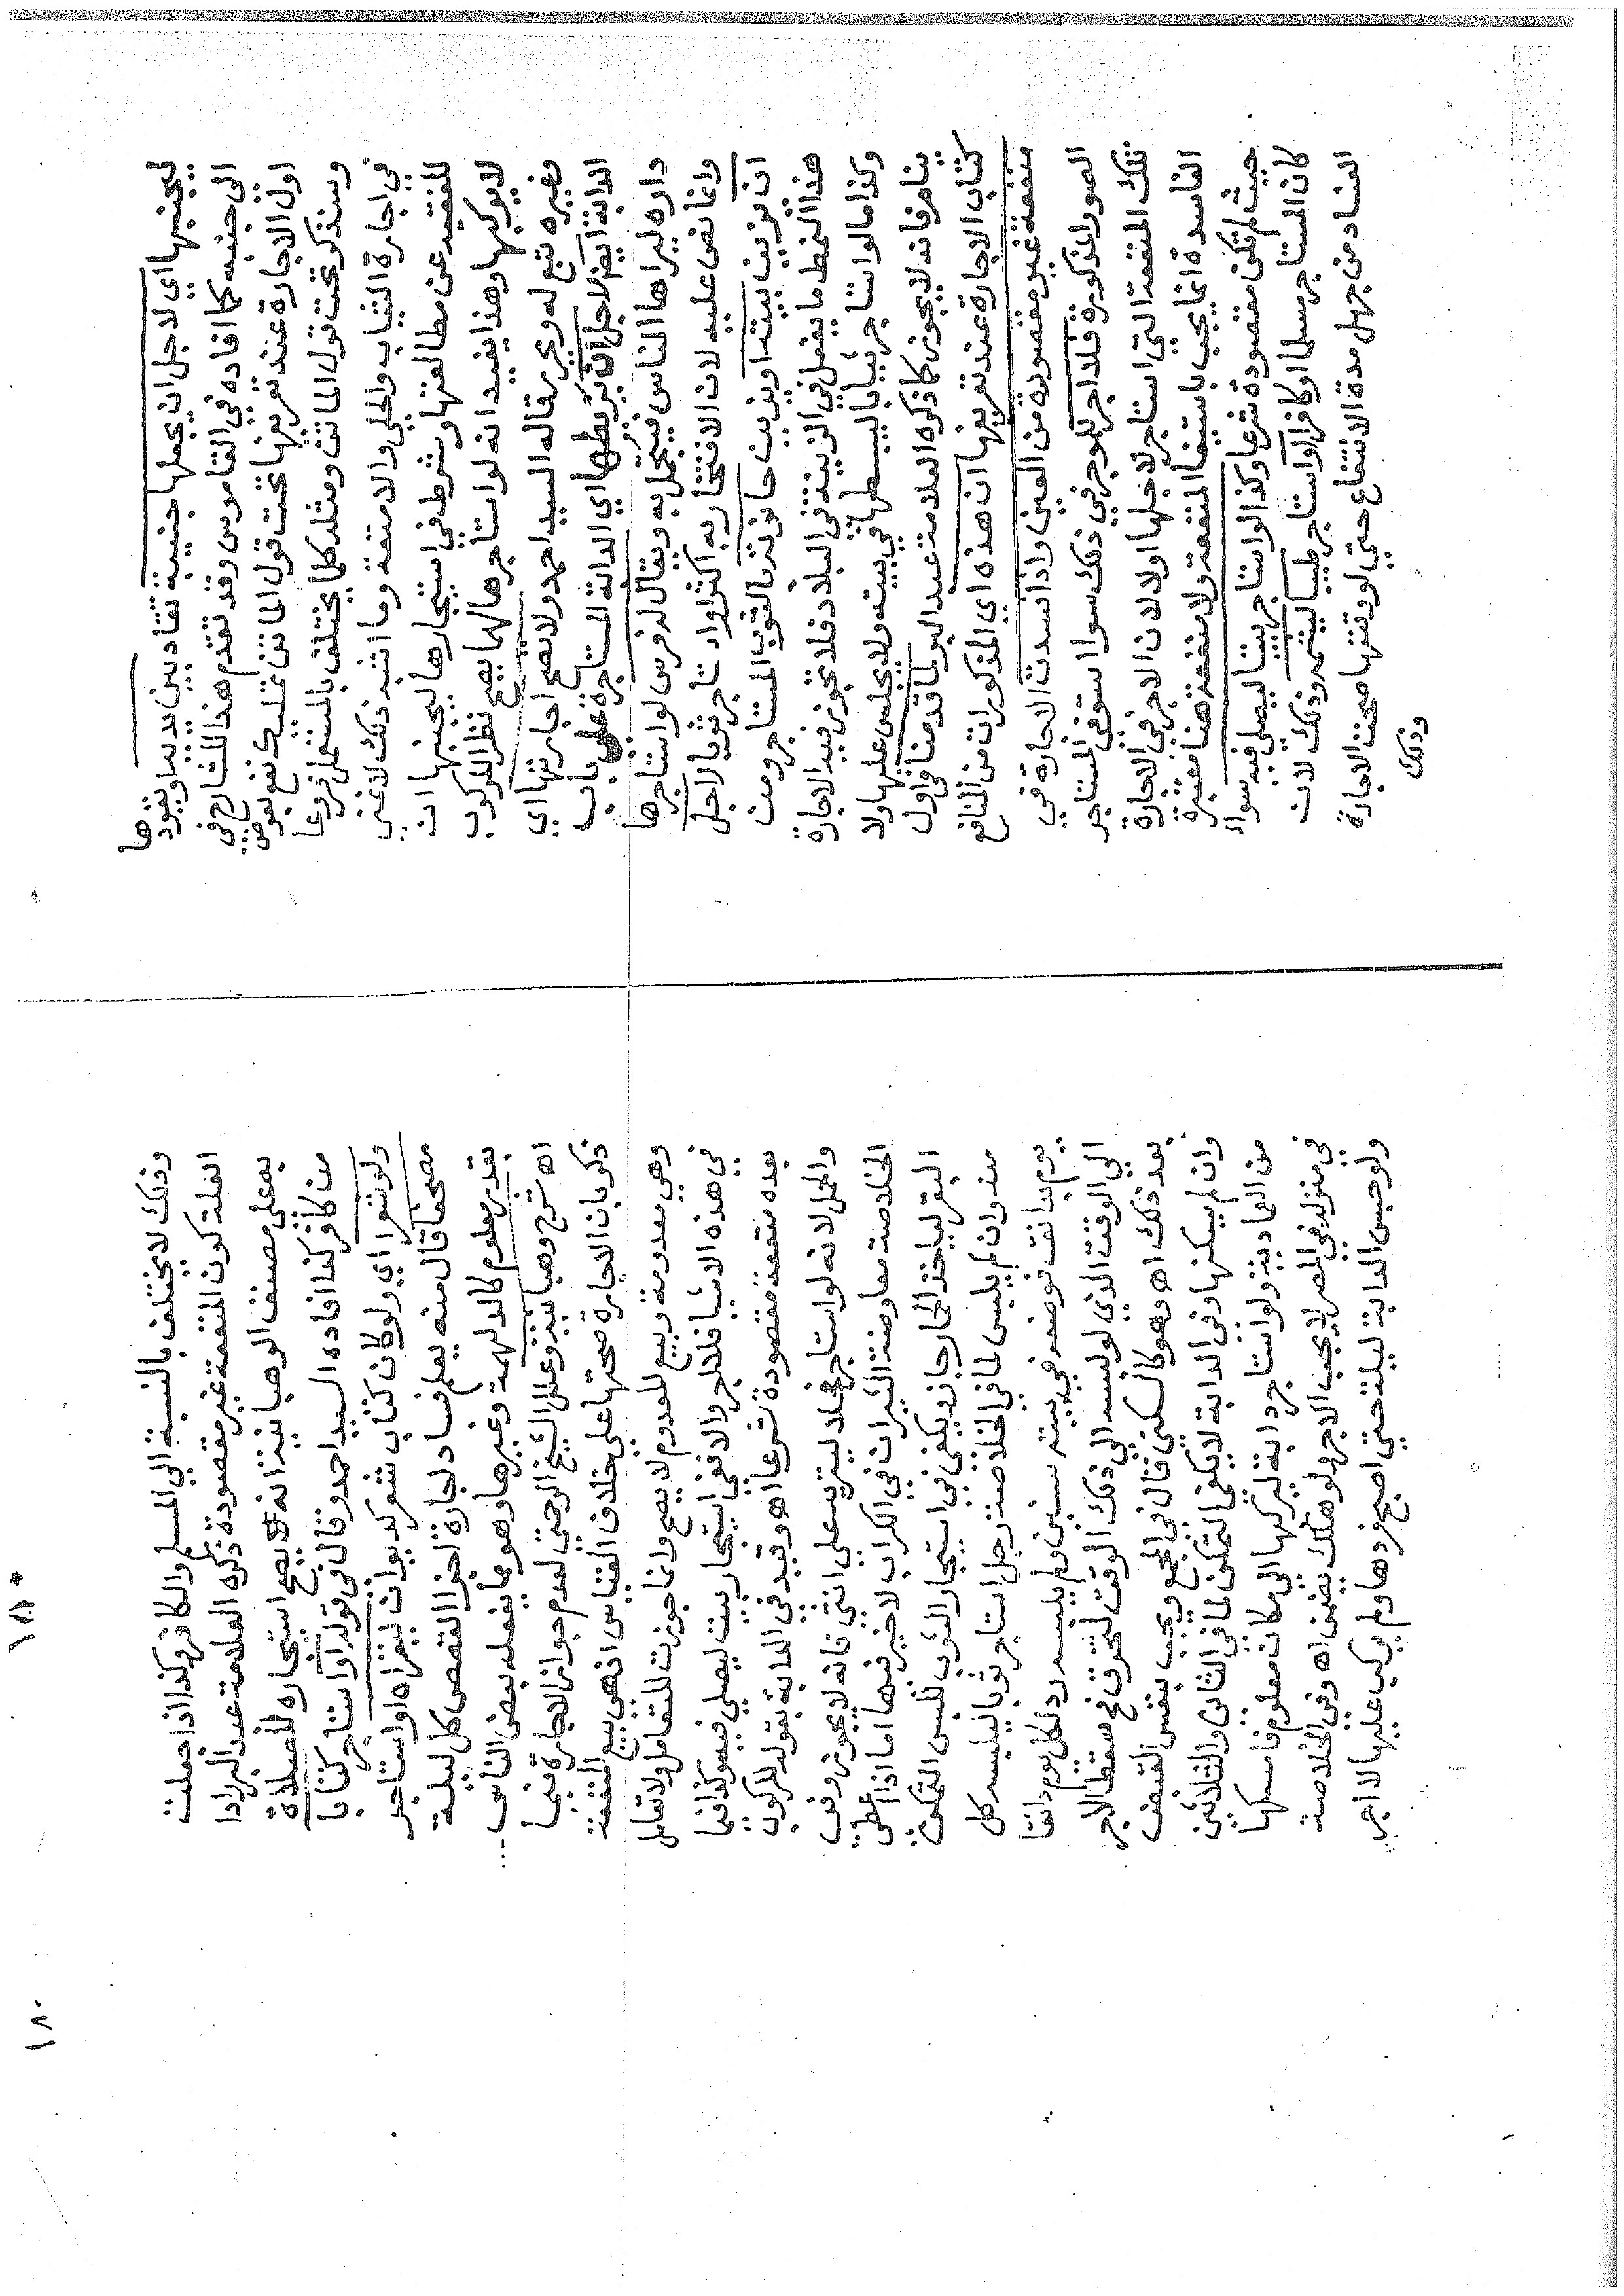 ليجنبها اي لاجل ان يجعلها جنيبة تقاد بين يديه او يقودها
الى جنبه كما افاده في القاموس وقد تقدم هذا للشارح في
اول الاجارة عند تعريفها تحت قول الماتن تمليك نفع بعوض
وسنذكر تحت قول الماتن ومثله كلما يختلف بالمستعمل فروعا
في اجارة الثياب والحلي والامتعة وما اشبه ذلك لاغنى
للفقيه عن مطالعتها وشرط في استيجارها ليجنبها ان
لا يركبها وهذا يفيد انه لو استاجرها لهما يصح نظرا للركوب
وغيره تبع له ويحرر قاله السيد احمد ولا تصح اجارتها اي
الدابة ايضا لاجل ان يربطها اي الدابة المستاجرة على باب
داره ليراها الناس فيتجمل به ويقال له فرس لو استاجرها
وانما نص عليه لان الافتخار به اكثر او استاجر ثوبا لاجل
ان يزين بيته او يزين حانوته بالثوب المستاجر ومن
هذا النمط ما يفعل في الزينة في البلاد فلا تجوز فيه الاجارة
وكذا ما لو استاجر ثيابا ليبسطها في بيته ولا يجلس عليها ولا
ينام فانه لا يجوز كما ذكره العلامة عبد البر لما قدمنا في اول
كتاب الاجارة عند تعريفها ان هذه اي المذكورات من المنافع
منفعة غير مقصودة من العين واذا فسدت الاجارة في
الصور المذكورة فلا اجر للموجر في ذلك سوا استوفى المستاجر
تلك المنفعة التي استاجر لاجلها اولا لان الاجر في الاجارة
الفاسدة انما يجب باستيفا المنفعة ولا منفعة هنا معتبرة
حيث لم تكن مقصودة شرعا وكذا لو استاجر بيتا ليصلي فيه سواء
كان المستاجر مسلما او كافرا او استاجر طيبا ليشمه وذلك لان
الفساد من جهل مدة الانتفاع حتى لو وقتها صحت الاجارة
وذلك
وذلك لا يختلف بالنسبة الي المسلم والكافر وكذا اذا جعلت
العلة كون المنفعة غير مقصودة ذكره العلامة عبد البر رادا
به على مصنف الوهبانية انه لا يصح استيجاره للصلاة
من كافر كذا افاده السيد احمد وقال في قوله او استاجر كتابا
ولو شعرا اي ولو كان كتاب شعر كديوان ليقراه او استاجر
مصحفا قال منه يعلم فساد اجارة اجزا القصص كل ليلة
بقدر معلوم كالدلهمة وغيرها وهو مما يفعله بعض الناس ...
اه شرح وهبانية وعلل الشيخ الرحمتي لعدم جواز الاجارة فيما
ذكر بان الاجارة صحتها على خلاف القياس اذ هي بيع المنفعة
وهي معدومة وبيع المعدوم لا يصح وانما جوزت للتعامل ولا تعامل
في هذه الاشيا فلا اجر والا ففي استيجار بيت ليصلي فيه وكذا فيما
بعده منفعة مقصودة شرعا اه وقيد في الدابة بقوله للركوب
والحمل لانه لو استاجر فحلا لينزيه على انثى فانه لا يجوز وفي
الخلاصة معاوضة الثيران في الكراب لا خير فيها اما اذا اعطى
البقر لياخذ الحمار جاز ويكفي في استيجار الثوب للبس التمكن
منه وان لم يلبس لما في الخلاصة رجل استاجر ثوبا ليلبسه كل
يوم بدانق فوضعه في بيته سنين ولم يلبسه رد لكل يوم دانقا
الي الوقت الذي لو لبسه الي ذلك الوقت لتخرق ثم سقط الاجر
بعد ذلك اه وهو كالسكنى قال في المجمع ويجب بنفس القبض
وان لم يسكنها وفي الدابة لا يكفي التمكن لما في الثاني والثلاثين
من العمادية ولو استاجر دابة ليركبها الي مكان معلوم فامسكها
في منزله في المصر لا يجب الاجر ولو هلك يضمن اه وفي الخلاصة
ولو حبس الدابة ليلة حتى اصبح فردها ولم يركب عليها لا اجر
١٨٠
١٨٠